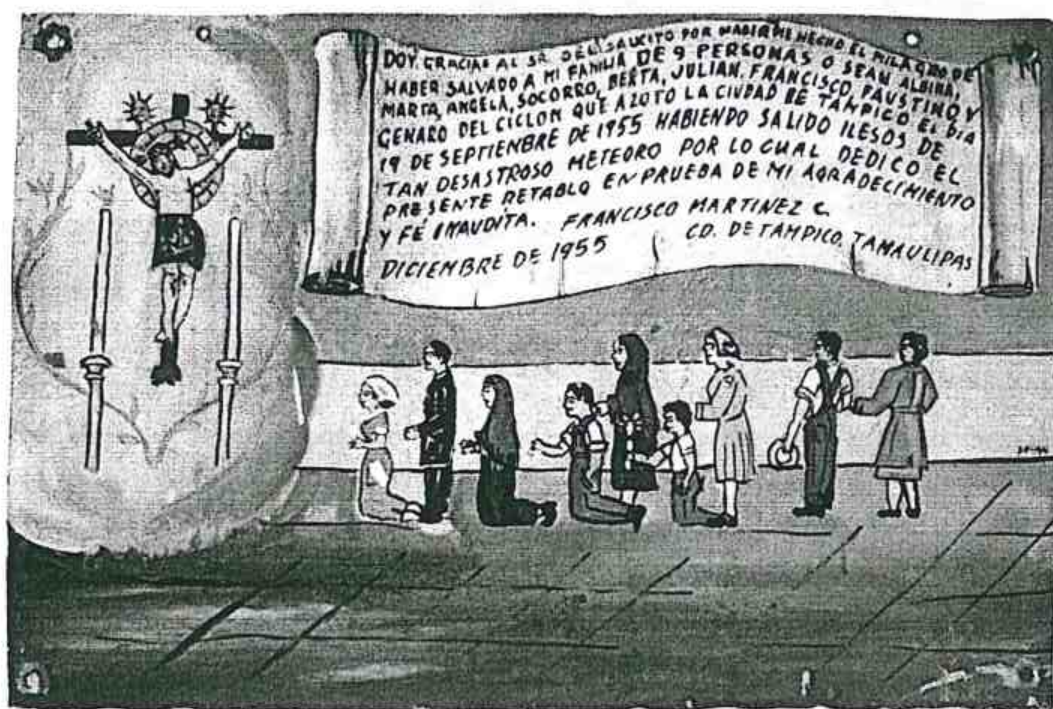 DOY GRACIAS AL SR. DEL SAUCITO POR HABERME HECHO EL MILAGRO DE
HABER SALVADO A MI FAMILIA DE 9 PERSONAS O SEAN ALBINA,
MARTA, ANGELA, SOCORRO, BERTA, JULIAN, FRANCISCO, FAUSTINO Y
GENARO DEL CICLON QUE AZOTO LA CIUDAD DE TAMPICO EL DIA
19 DE SEPTIEMBRE DE 1955 HABIENDO SALIDO ILESOS DE
TAN DESASTROSO METEORO POR LO CUAL DEDICO EL
PRESENTE RETABLO EN PRUEBA DE MI AGRADECIMIENTO
Y FÉ INAUDITA. FRANCISCO MARTINEZ C.
DICIEMBRE DE 1955 CD. DE TAMPICO, TAMAULIPAS